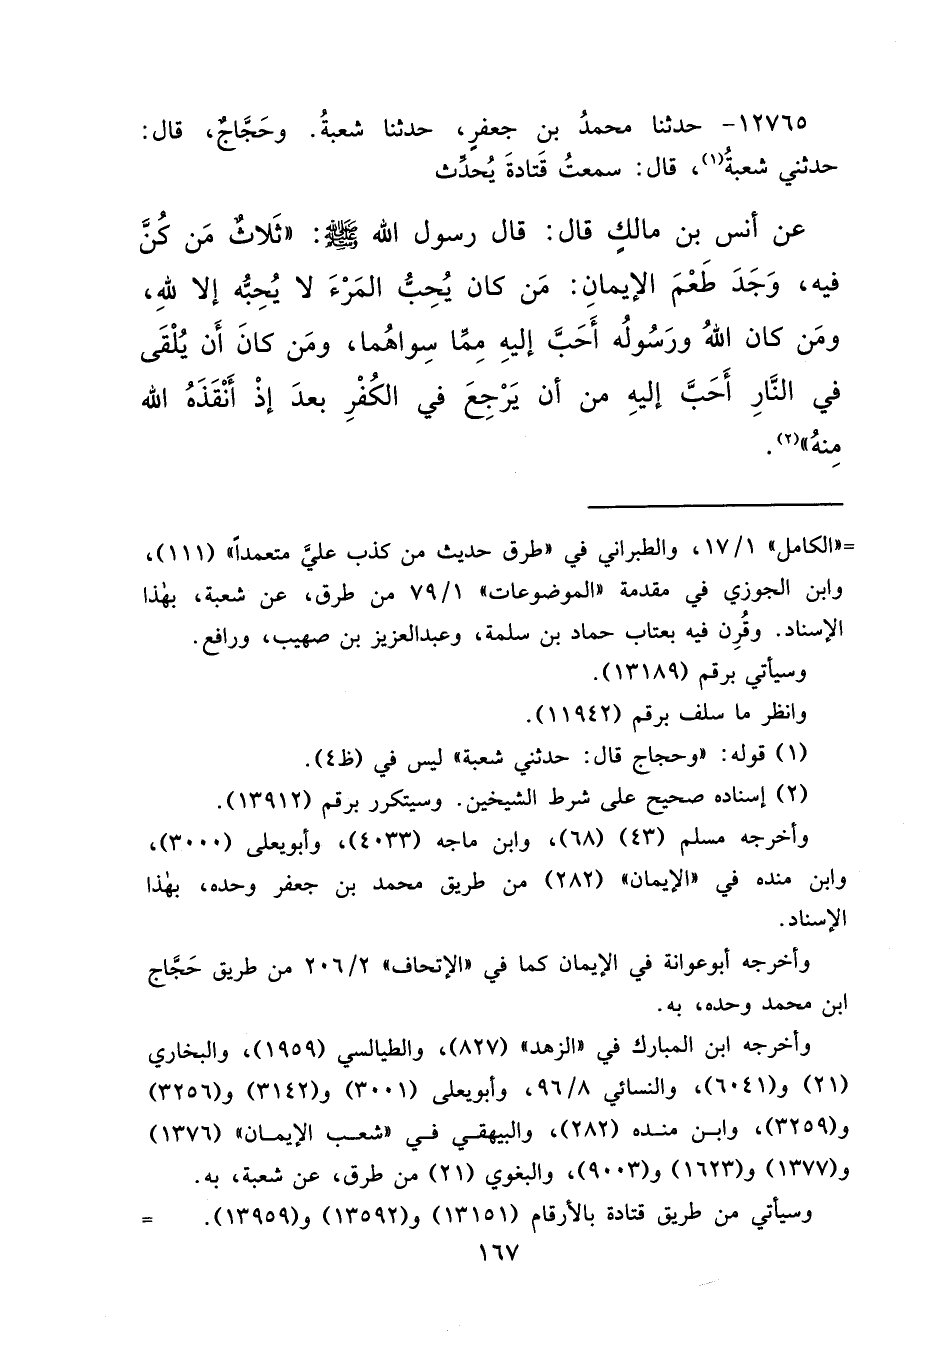 ١٢٧٦٥- حدثنا محمدُ بن جعفرٍ، حدثنا شعبةُ. وحَجَّاجٌ، قال:
حدثني شعبةُ(١)، قال: سمعتُ قَتادةَ يُحدِّث
عن أنس بن مالكٍ قال: قال رسول الله ﷺ: «ثَلاثٌ مَن كُنَّ
فيه، وَجَدَ طَعْمَ الإيمانِ: مَن كان يُحِبُّ المَرْءَ لا يُحِبُّه إلا للهِ،
ومَن كان اللهُ ورَسُولُه أَحَبَّ إليهِ مِمَّا سِواهُما، ومَن كانَ أَن يُلْقَى
في النَّارِ أَحَبَّ إليهِ من أن يَرْجِعَ في الكُفْرِ بعدَ إذْ أَنْقَذَهُ الله
مِنهُ»(٢).
=«الكامل» ١٧/١، والطبراني في «طرق حديث من كذب عليَّ متعمداً» (١١١)،
وابن الجوزي في مقدمة «الموضوعات» ٧٩/١ من طرق، عن شعبة، بهٰذا
الإسناد. وقُرِن فيه بعتاب حماد بن سلمة، وعبدالعزيز بن صهيب، ورافع.
وسيأتي برقم (١٣١٨٩).
وانظر ما سلف برقم (١١٩٤٢).
(١) قوله: «وحجاج قال: حدثني شعبة» ليس في (ظ٤).
(٢) إسناده صحيح على شرط الشيخين. وسيتكرر برقم (١٣٩١٢).
وأخرجه مسلم (٤٣) (٦٨)، وابن ماجه (٤٠٣٣)، وأبويعلى (٣٠٠٠)،
وابن منده في «الإيمان» (٢٨٢) من طريق محمد بن جعفر وحده، بهٰذا
الإسناد.
وأخرجه أبوعوانة في الإيمان كما في «الإتحاف» ٢٠٦/٢ من طريق حَجَّاج
ابن محمد وحده، به.
وأخرجه ابن المبارك في «الزهد» (٨٢٧)، والطيالسي (١٩٥٩)، والبخاري
(٢١) و(٦٠٤١)، والنسائي ٩٦/٨، وأبويعلى (٣٠٠١) و(٣١٤٢) و(٣٢٥٦)
و(٣٢٥٩)، وابن منده (٢٨٢)، والبيهقي في «شعب الإيمان» (١٣٧٦)
و(١٣٧٧) و(١٦٢٣) و(٩٠٠٣)، والبغوي (٢١) من طرق، عن شعبة، به.
وسيأتي من طريق قتادة بالأرقام (١٣١٥١) و(١٣٥٩٢) و(١٣٩٥٩). =
١٦٧